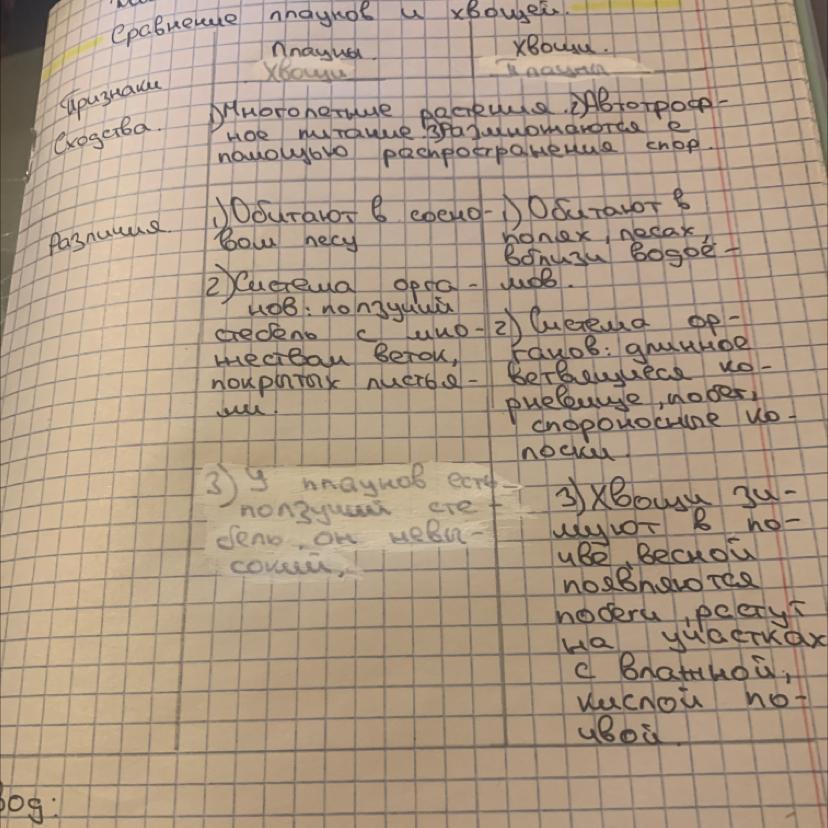 Сравнение плаунов и хвощей.
Плауны. Хвощи.
Хвощи Плауны
Признаки
сходства.
1)Многолетние растения. 2)Автотроф-
ное питание 3)Размножаются с
помощью распространения спор.
Различия.
1)Обитают в сосно-
вом лесу
2)Система орга-
нов: ползущий
стебель с мно-
жеством веток,
покрытых листья-
ми.
3) У плаунов есть
ползущий сте-
бель, он невы-
сокий,
1) Обитают в
полях, лесах,
вблизи водое-
мов.
2) Система ор-
ганов: длинное
ветвящиеся ко-
рневище, побег,
спороносные ко-
лоски.
3) Хвощи зи-
муют в по-
чве, весной
появляются
побеги, растут
на участках
с влажной,
кислой по-
чвой.
вод: